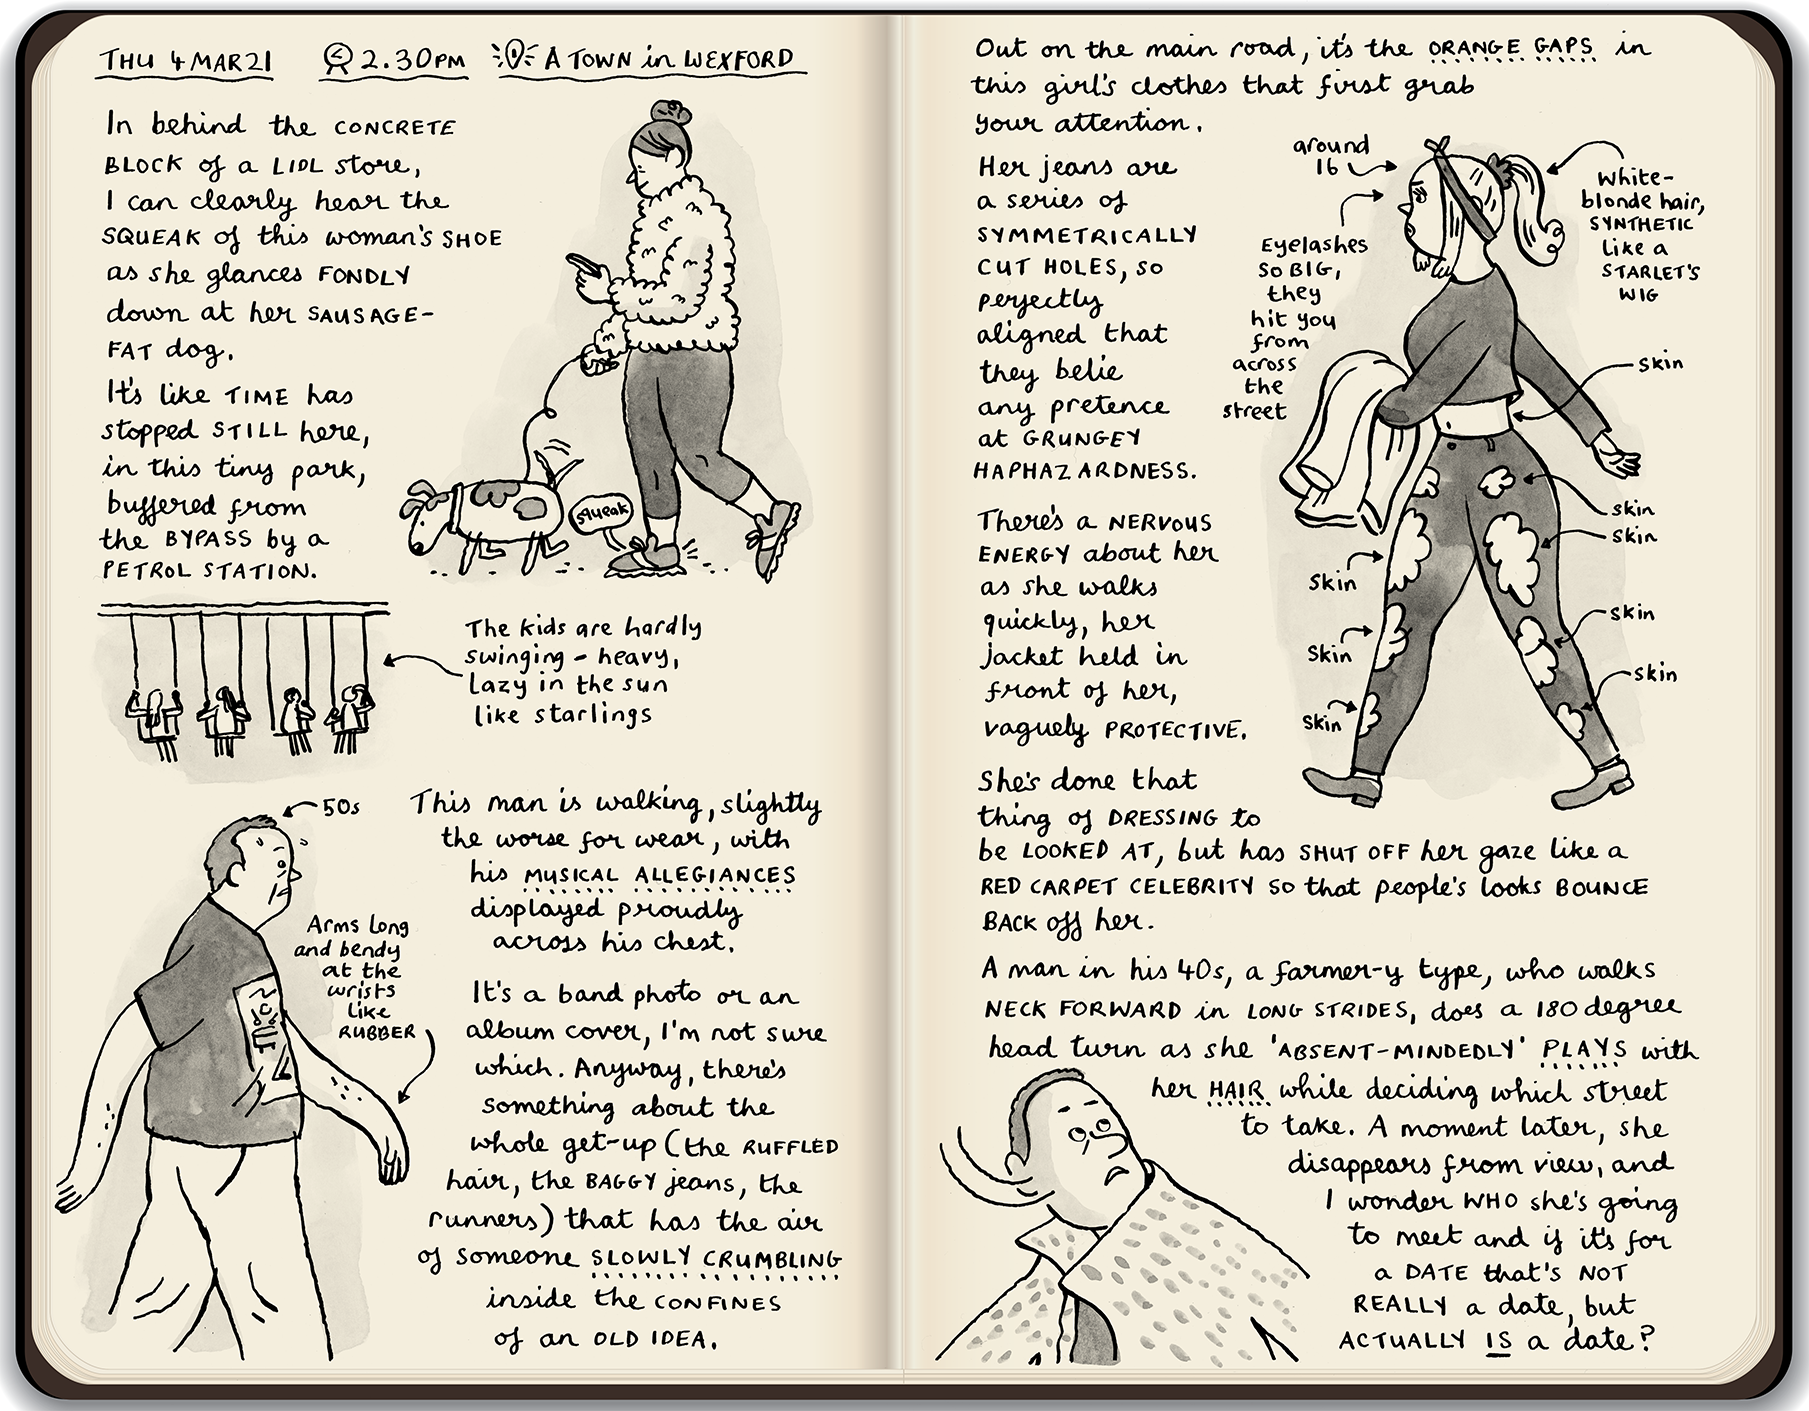 THU 4 MAR 21 2.30PM A TOWN in WEXFORD
In behind the CONCRETE
BLOCK of a LIDL store,
I can clearly hear the
SQUEAK of this woman's SHOE
as she glances FONDLY
down at her SAUSAGE-
FAT dog.
It's like TIME has
stopped STILL here,
in this tiny park,
buffered from
the BYPASS by a
PETROL STATION.
squeak
The kids are hardly
swinging - heavy,
lazy in the sun
like starlings
50s
Arms long
and bendy
at the
wrists
like
RUBBER
This man is walking, slightly
the worse for wear, with
his MUSICAL ALLEGIANCES
displayed proudly
across his chest.
It's a band photo or an
album cover, I'm not sure
which. Anyway, there's
something about the
whole get-up (the RUFFLED
hair, the BAGGY jeans, the
runners) that has the air
of someone SLOWLY CRUMBLING
inside the CONFINES
of an OLD IDEA.
Out on the main road, it's the ORANGE GAPS in
this girl's clothes that first grab
your attention.
Her jeans are
a series of
SYMMETRICALLY
CUT HOLES, so
perfectly
aligned that
they belie
any pretence
at GRUNGEY
HAPHAZARDNESS.
There's a NERVOUS
ENERGY about her
as she walks
quickly, her
jacket held in
front of her,
vaguely PROTECTIVE.
around
16
Eyelashes
SO BIG,
they
hit you
from
across
the
street
White-
blonde hair,
SYNTHETIC
like a
STARLET'S
WIG
skin
skin
skin
skin
skin
skin
skin
skin
She's done that
thing of DRESSING to
be LOOKED AT, but has SHUT OFF her gaze like a
RED CARPET CELEBRITY so that people's looks BOUNCE
BACK off her.
A man in his 40s, a farmer-y type, who walks
NECK FORWARD in LONG STRIDES, does a 180 degree
head turn as she 'ABSENT-MINDEDLY' PLAYS with
her HAIR while deciding which street
to take. A moment later, she
disappears from view, and
I wonder WHO she's going
to meet and if it's for
a DATE that's NOT
REALLY a date, but
ACTUALLY IS a date?